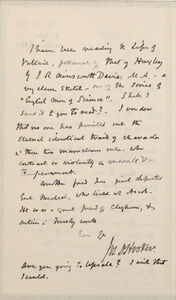 I have been reading a Life of
Voltaire, followed by that of Huxley
by J. R. Ainsworth Davis M.A. a
very clever sketch — one of the series of
"English Men of Science". Shall I
send it you to read? — I wonder
that no one has pointed out the
several identical traits of character
in these two marvellous men, who
contrast so violently in morale &
temperament.
Another good has just departed
who lived at
He was a good friend of Cleghorn, &
active in Forestry work
Ever yrs
Jos. D Hooker
Are you going to Upsala? I wish that
I could.